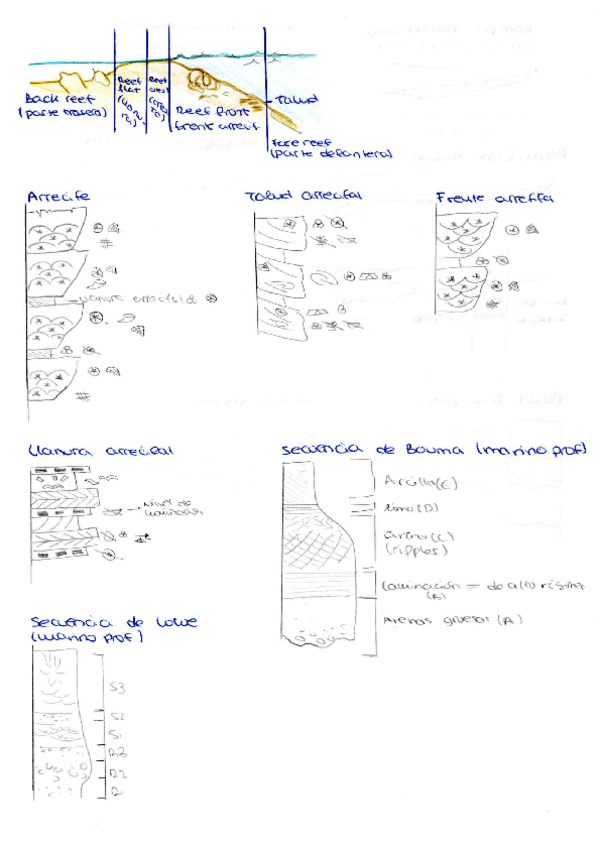 Back reef
(parte trasera)
Reef
flat
Reef
crest
(cresta)
Reef front
frente arrecif
Talud
Fore reef
(parte delantera)
Arrecife
Talud arrecifal
Frente arrecifal
llanura arrecifal
Llanura arrecifal
nivel de
Secuencia de Bouma (marino prof)
Arcilla (E)
limo (D)
arena (C)
(ripples)
Laminación = de alto régimen
(B)
Arenas gruesas (A)
Secuencia de Lowe
(marino prof)
S3
S2
S1
R3
R2
R